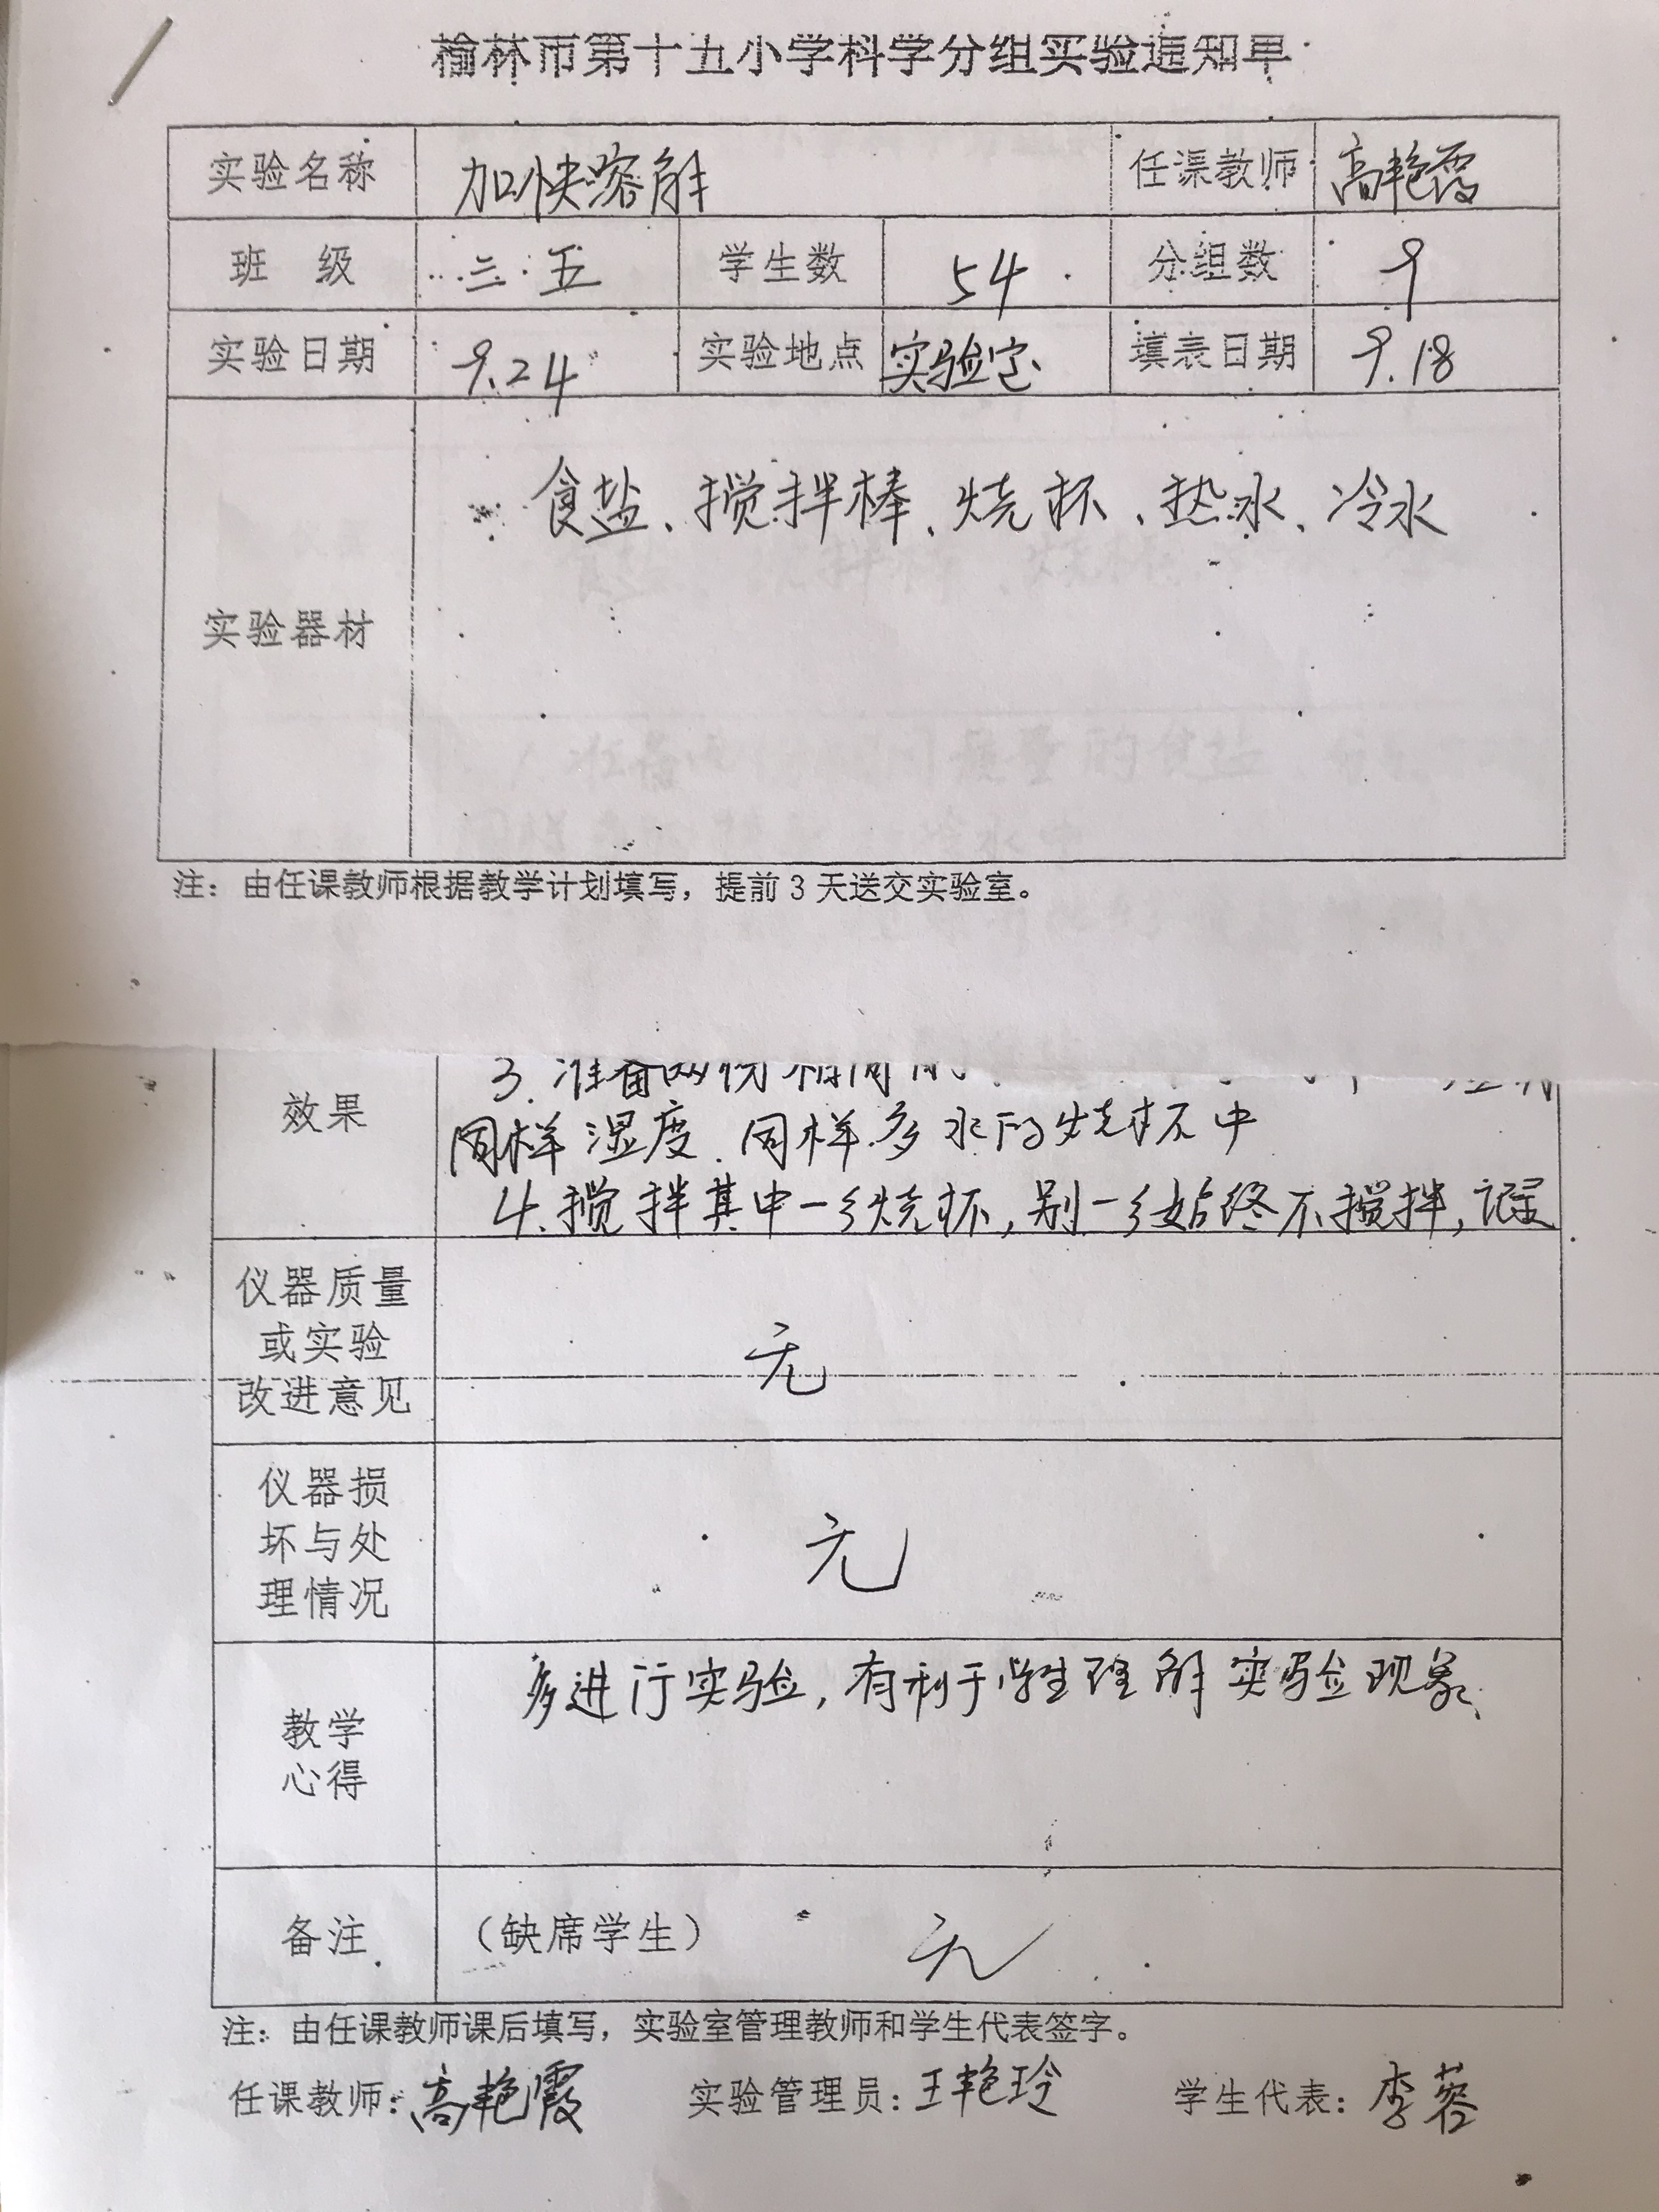 榆林市第十五小学科学分组实验通知单
实验名称 加快溶解 任课教师 高艳霞
班 级 三.五 学生数 54 分组数 9
实验日期 9.24 实验地点 实验室 填表日期 9.18
食盐、搅拌棒、烧杯、热水、冷水
实验器材
注：由任课教师根据教学计划填写，提前3天送交实验室。
3.准备两份相同
效果
同样湿度、同样多水的烧杯中
4.搅拌其中一个烧杯，别一个始终不搅拌，记录
仪器质量
或实验 无
改进意见
仪器损
坏与处 无
理情况
多进行实验，有利于学生理解实验现象、
教学
心得
备注 （缺席学生） 无
注：由任课教师课后填写，实验室管理教师和学生代表签字。
任课教师：高艳霞 实验管理员：王艳玲 学生代表：李蓉